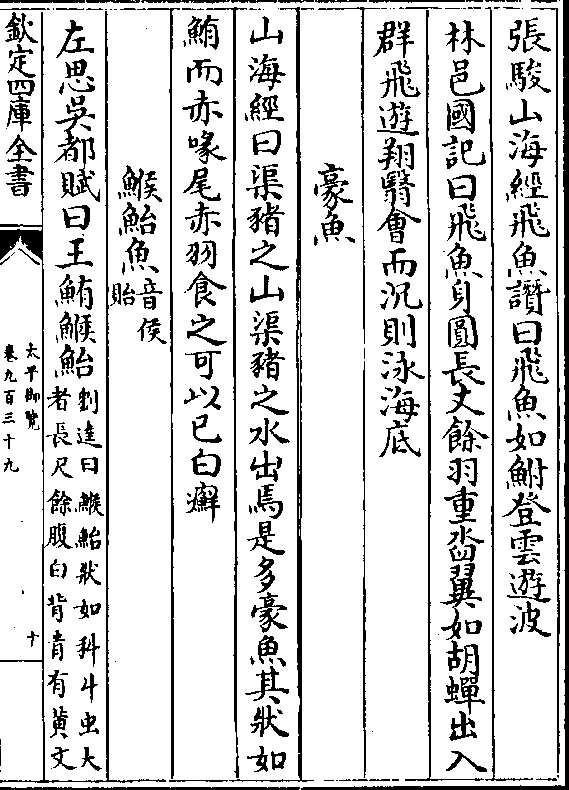 張駿山海經飛魚讚曰飛魚如鮒登雲遊波
林邑國記曰飛魚身圓長丈餘羽重沓翼如胡蟬出入
群飛遊翔翳會而沉則泳海底
豪魚
山海經曰渠豬之山渠豬之水出焉是多豪魚其狀如
鮪而赤喙尾赤羽食之可以已白癬
鯸鮐魚音侯
貽
左思吳都賦曰王鮪鯸鮐劉逵曰鯸鮐狀如科斗虫大
者長尺餘腹白背青有黄文
欽定四庫全書
太平御覽
卷九百三十九
十